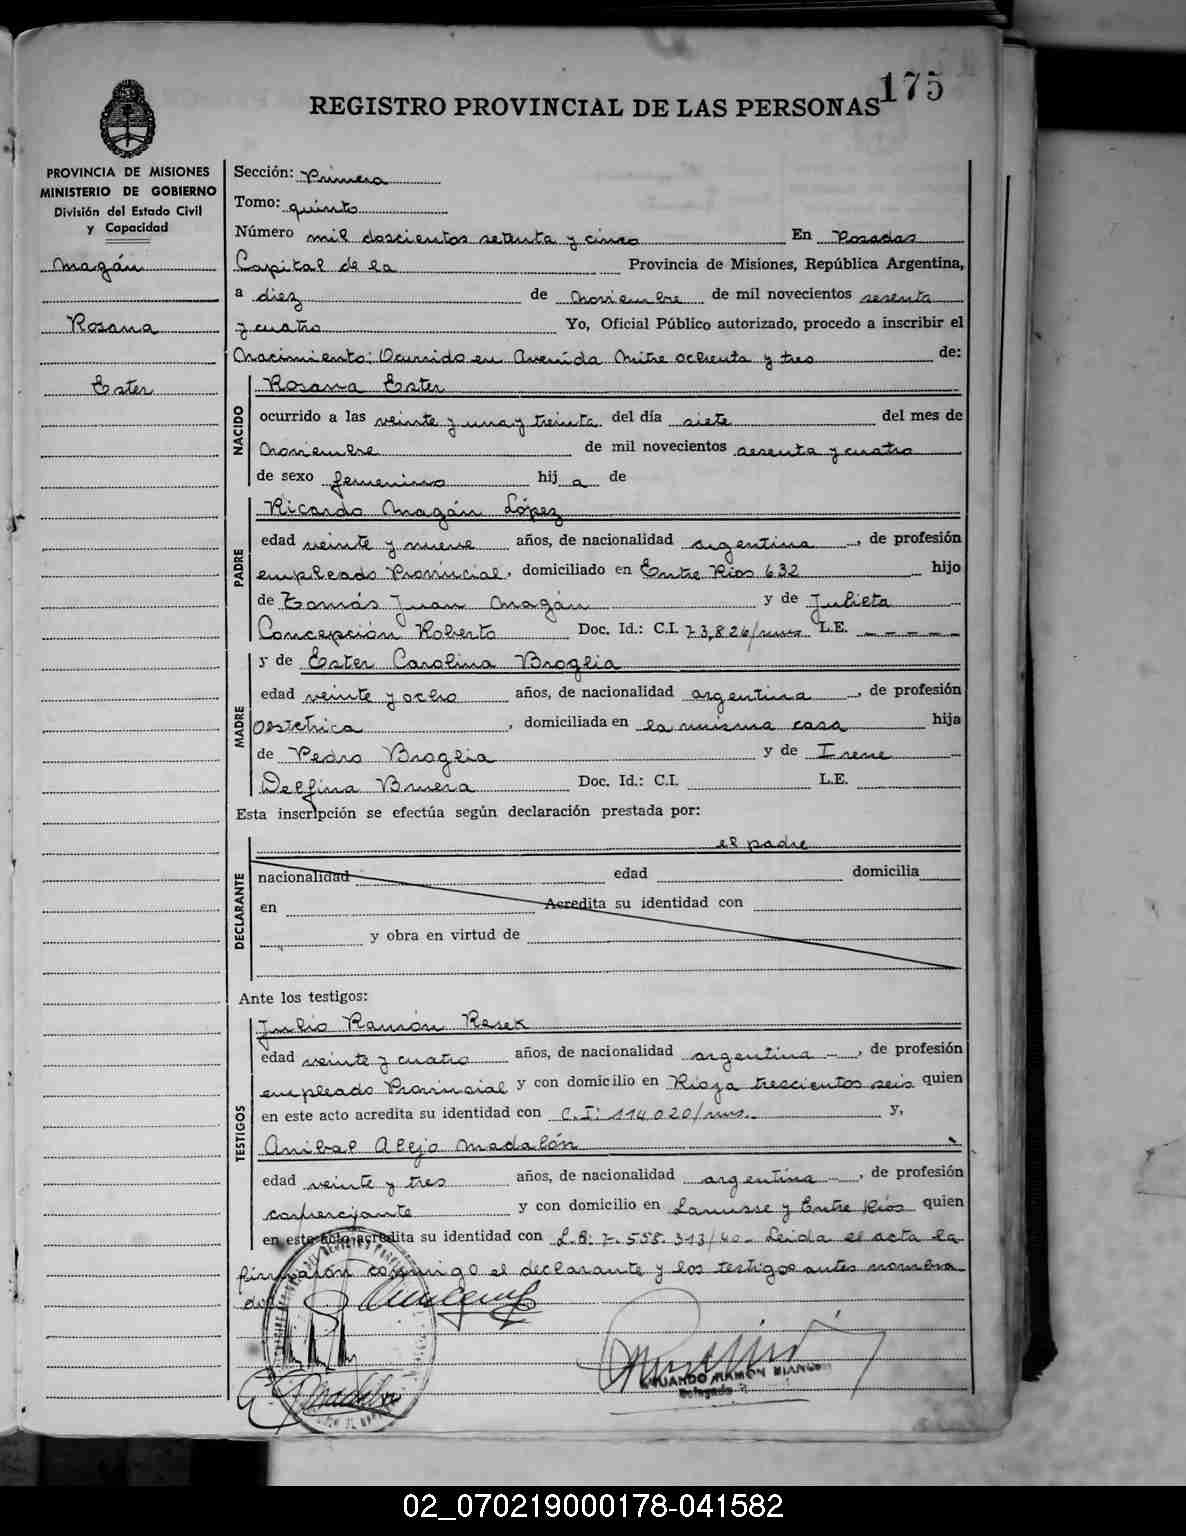 175
REGISTRO PROVINCIAL DE LAS PERSONAS
PROVINCIA DE MISIONES
MINISTERIO DE GOBIERNO
División del Estado Civil
y Capacidad
Magán
Rosana
Ester
Sección: Primera
Tomo: quinto
Número mil doscientos setenta y cinco En Posadas
Capital de la Provincia de Misiones, República Argentina,
a diez de noviembre de mil novecientos sesenta
y cuatro Yo, Oficial Público autorizado, procedo a inscribir el
Nacimiento: Ocurrido en Avenida Mitre ochenta y tres de:
NACIDO
Rosana Ester
ocurrido a las veinte y una y treinta del día siete del mes de
noviembre de mil novecientos sesenta y cuatro
de sexo femenino hij a de
PADRE
Ricardo Magán López
edad veinte y nueve años, de nacionalidad argentina, de profesión
empleado Provincial, domiciliado en Entre Ríos 632 hijo
de Tomás Juan Magán y de Julieta
Concepción Roberto Doc. Id.: C.I. 73,826/mns L.E. - - - - -
MADRE
y de Ester Carolina Broglia
edad veinte y ocho años, de nacionalidad argentina, de profesión
Obstetrica, domiciliada en la misma casa hija
de Pedro Broglia y de Irene
Delfina Bruera Doc. Id.: C.I. L.E.
Esta inscripción se efectúa según declaración prestada por:
DECLARANTE
el padre
nacionalidad edad domicilia
en Acredita su identidad con
y obra en virtud de
Ante los testigos:
TESTIGOS
Julio Ramón Resek
edad veinte y cuatro años, de nacionalidad argentina, de profesión
empleado Provincial y con domicilio en Rioja trescientos seis quien
en este acto acredita su identidad con C.I: 114020/mns. y,
Anibal Alejo Madalón
edad veinte y tres años, de nacionalidad argentina, de profesión
y con domicilio en Lanusse y Entre Ríos quien
en este acto acredita su identidad con 7.558.313/40- Leida el acta la
firmaron conmigo el declarante y los testigos antes nombra
dos
RAMON BIANCO
Delegado
02_070219000178-041582